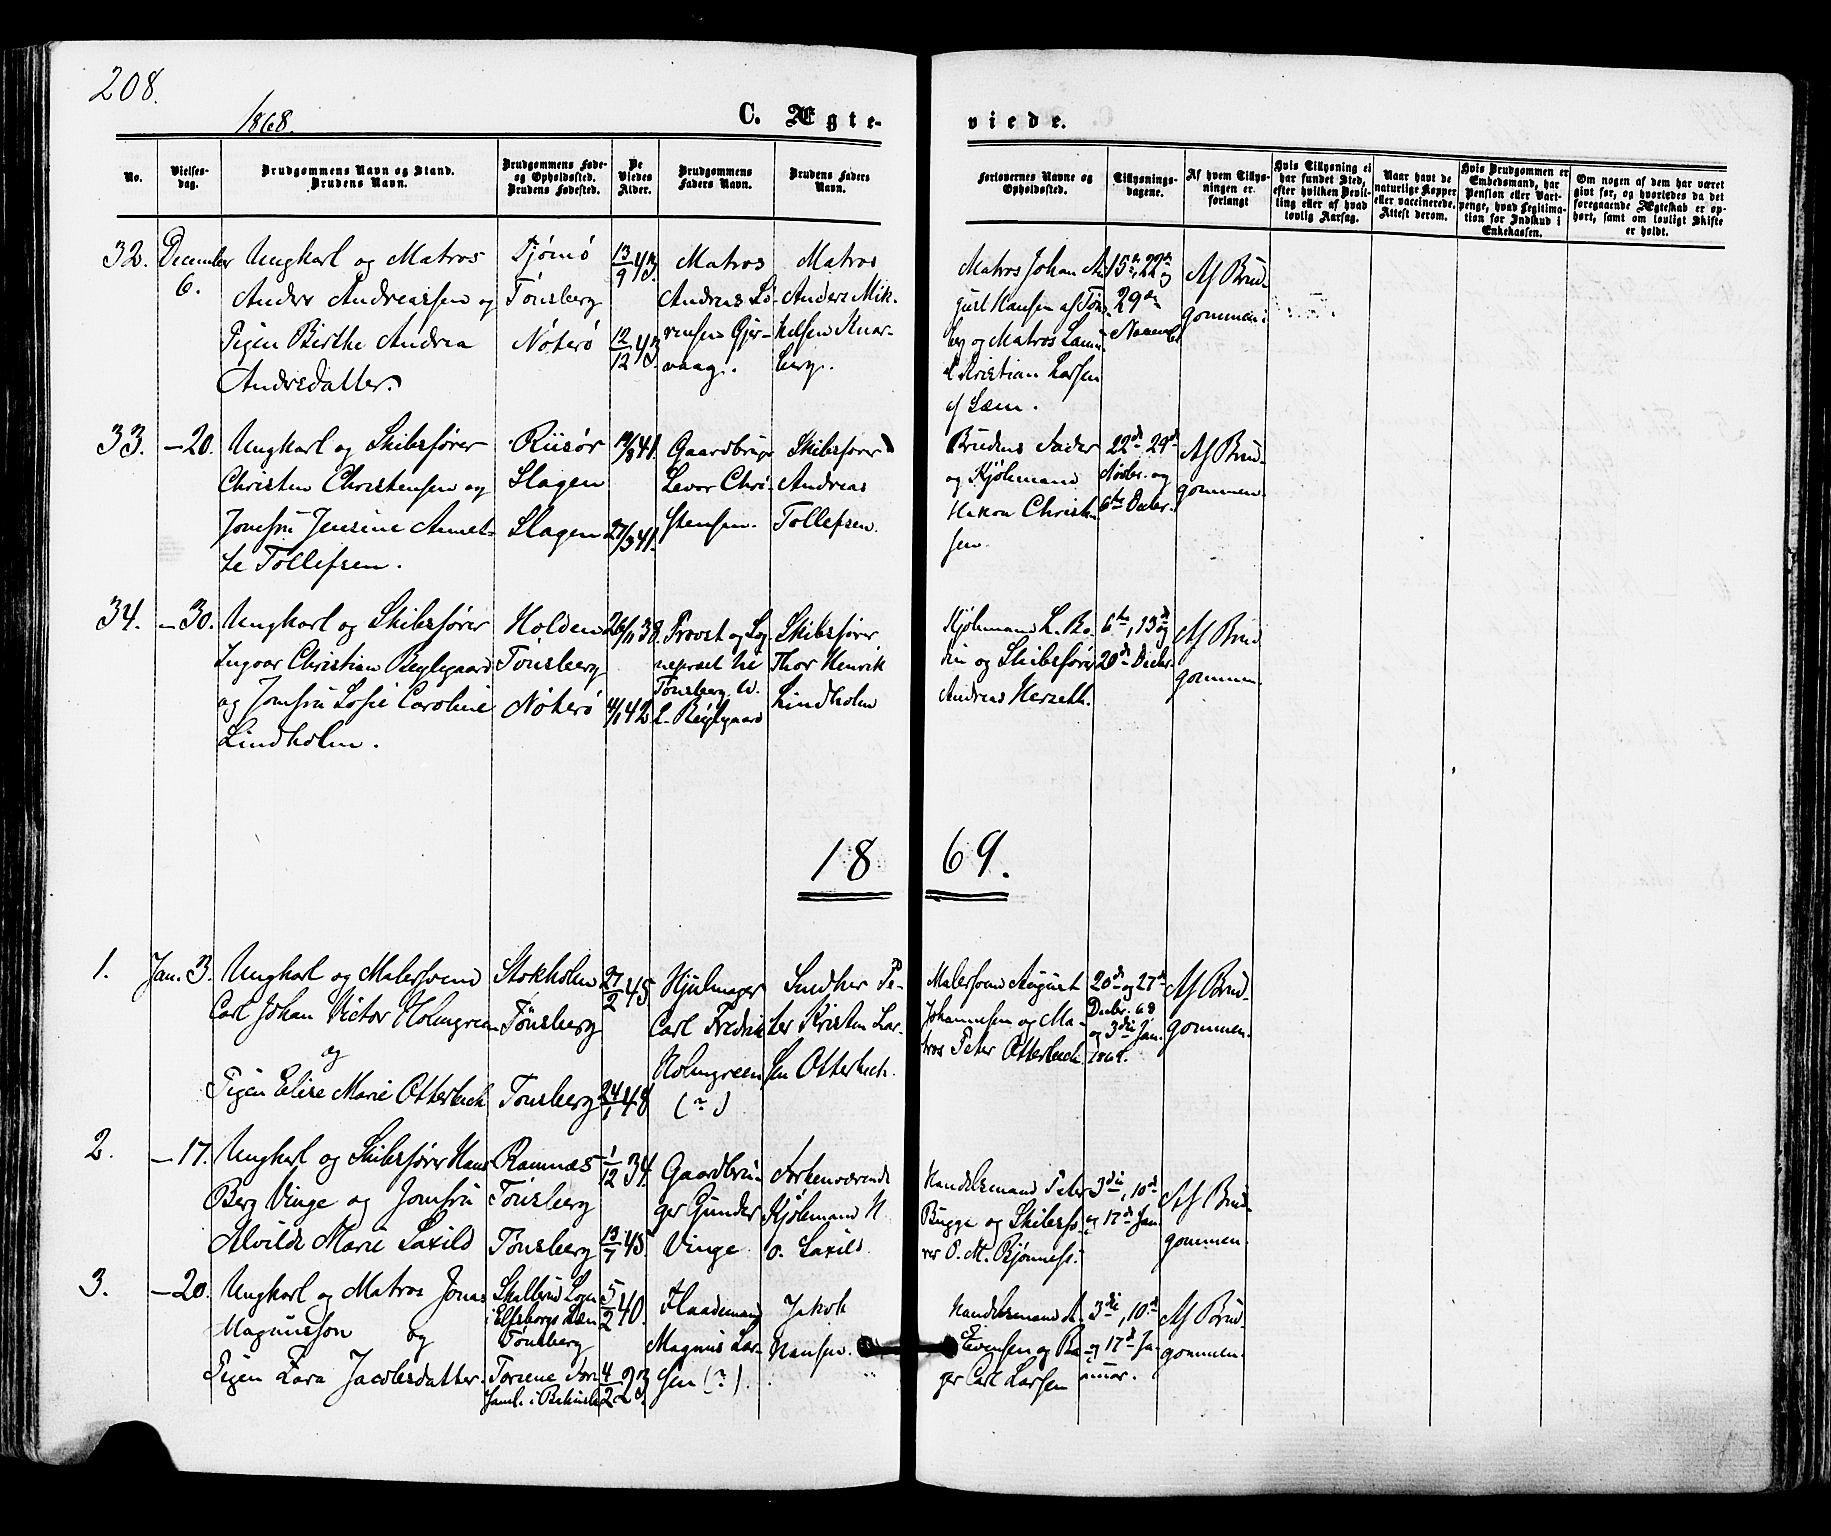 208.
1868.
C. Ægte-
viede.
No.
Vielses-
dag.
Brudgommens Navn og Stand.
Brudens Navn.
Brudgommens Føde-
og Opholdssted.
Brudens Fødested.
De
Viedes
Alder.
Brudgommens
Faders Navn.
Brudens Faders
Navn.
Forlovernes Navne og
Opholdssted.
Tillysnings-
dagene.
Af hvem Tillys-
ningen er
forlangt
Hvis Tillysning ei
har fundet Sted,
efter hvilken Bevil-
ling eller af hvad
lovlig Aarsag.
Naar havt de
naturlige Kopper
eller vaccinerede.
Attest derom.
Hvis Brudgommen er
Embedsmand, har
Pension eller Vart-
penge, hvad Legitima-
tion for Indskud i
Enkekassen.
Om nogen af dem har været
gift før, og hvorledes da det
foregaaende Ægteskab er op-
hørt, samt om lovligt Skifte
er holdt.
32.
December
6.
Ungkarl og Matros
Anders Andreassen og
Pigen Birthe Andrea
Andersdatter.
Tjømø
Tønsberg
Nøterø
13/9 43
12/12 43
Matros
Andreas Sø-
rensen Gjer-
vaag.
Matros
Anders Mik-
kelsen Knar-
berg.
Matros Johan Au
gust Hansen af Tøns-
berg og Matros Samu-
el Kristian Larsen
af Sæm.
15de, 22de og
29de
Novembr
Af Brud-
gommen
33.
—20.
Ungkarl og Skibsfører
Christen Christensen og
Jomfru Jensine Annet-
te Tollefsen.
Riisør
Slagen
Slagen
/8 41.
27/3 41.
Gaardbruger
Levor Chri-
stensen.
Skibsfører
Andreas
Tollefsen.
Brudens Fader
og Kjøbmand
Hakon Christen
sen.
22de 29de
Novbr. og
6te Decbr.
Af Brud-
gommen.
34.
—30.
Ungkarl og Skibsfører
Ingvar Christian Bugtegaard
og Jomfru Sofie Caroline
Lindholm.
Holden
Tønsberg
Nøterø
26/11 38.
11/1 42.
Provst og Sog
nepræst til
Tønsberg W.
L. Bugtgaard
Skibsfører
Thor Henrik
Lindholm
Kjøbmand L. Bo-
din og Skibsfører
Andreas Herseth.
6te, 13de og
20de Decbr.
Af Brud
gommen.
1869.
1.
Jan. 3.
Ungkarl og Malersvend
Carl Johan Victor Holmgreen
og
Pigen Elise Marie Otterbech
Stokholm
Tønsberg
Tønsberg
27/2 45
24/1 48
Hjulmager
Carl Fredrik
Holmgreen
(?)
Smed her Pe-
ter Kristen Lar-
sen Otterbech.
Malersvend August
Johannesen og Ma-
tros Peter Otterbech.
20de og 27de
Decbr. 68
og 3die Jan.
1869.
Af Brud-
gommen.
2.
—17.
Ungkarl og Skibsfører Hans
Berg Vinge og Jomfru
Alvilde Marie Saxild
Ramnæs
Tønsberg
Tønsberg
1/12 34.
13/7 45.
Gaardbru-
ger Gunder
Vinge
Forhenværende
Kjøbmand N.
O. Saxild.
Handelsmand Peter
Bugge og Skibsfø-
rer O. M. Bjønness.
3die, 10de
og 17de Jan
Af Brud-
gommen.
3.
—20.
Ungkarl og Matros Jonas
Magnusson og
Pigen Zara Jacobsdatter.
Skallerud Sogn
i Elfsborgs Læn
Tønsberg
5/2 40.
4/2 23.
Magnus Lar-
sen (?).
Jakob
Hansen.
Handelsmand A.
Evensen og Ba
ger Carl Larsen
3die, 10de
og 17de Ja-
nuar.
Af Brud-
gommen.